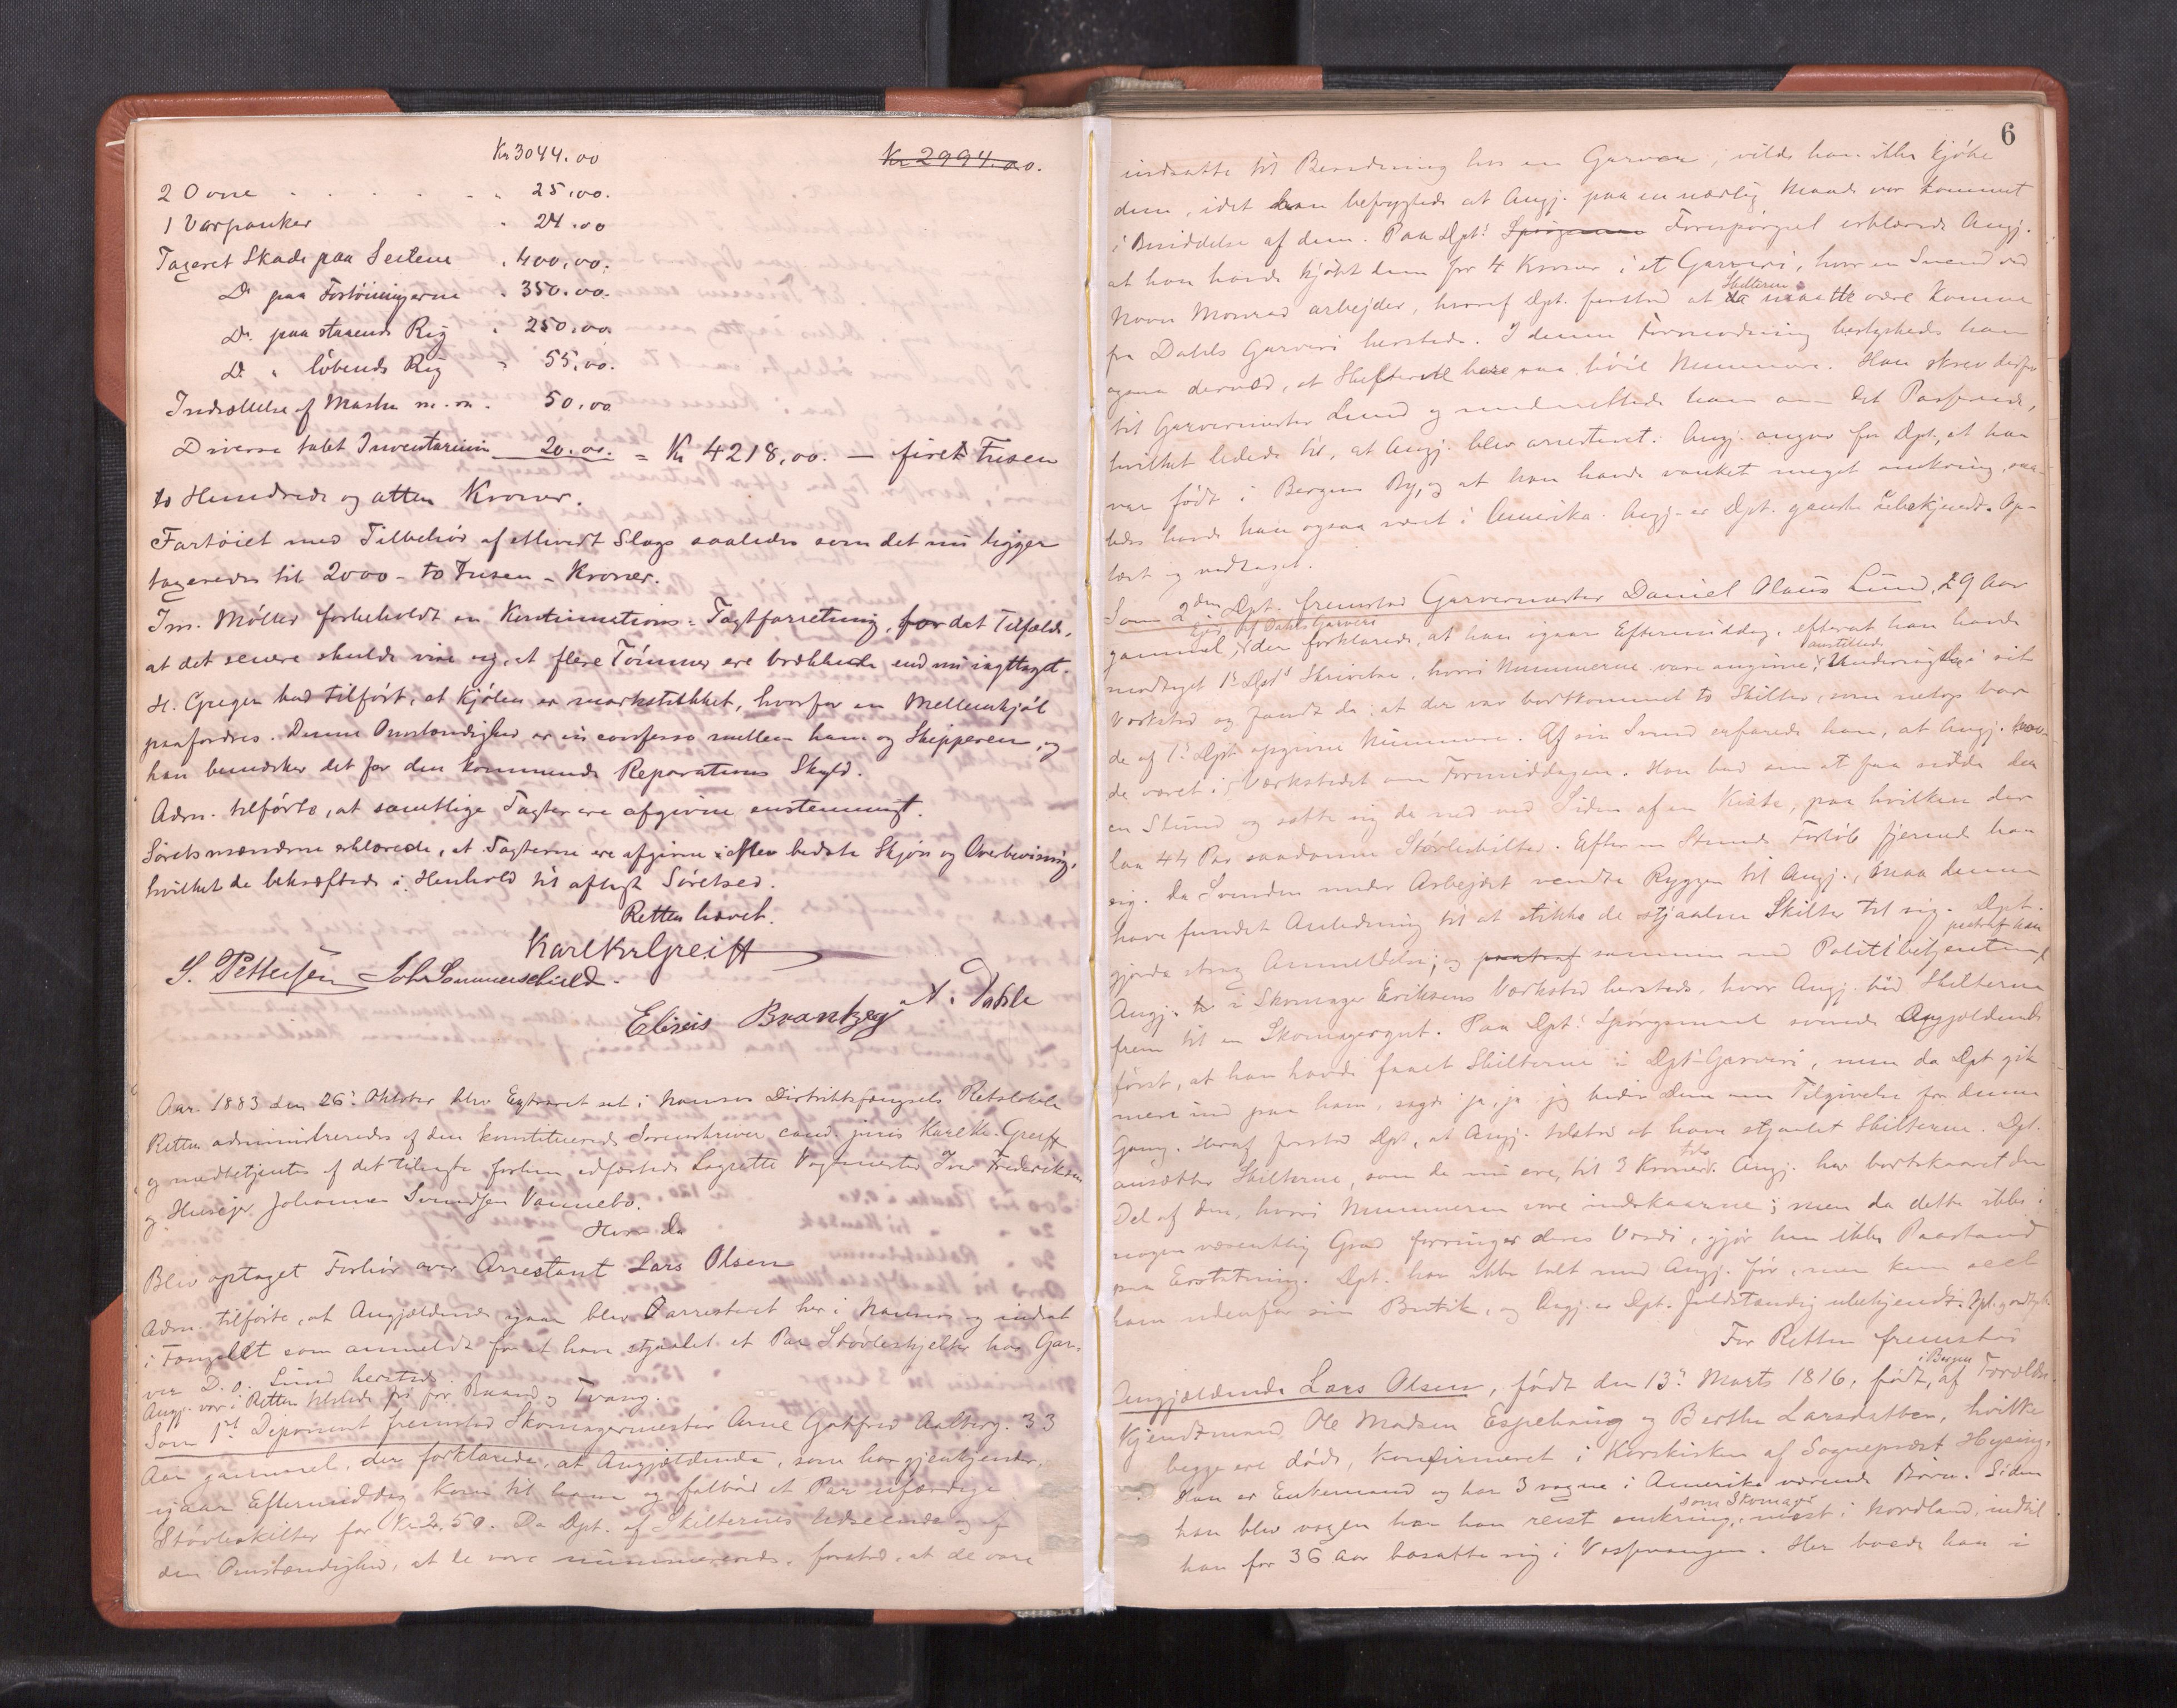 Kr 3044.00 Kr 2994.00.
2 Ovne . . . . . " 25.00.
1 Varpanker " 24.00
Taxeret Skade paa Seilene " 400,00.
Do paa Fortöiningerne " 350.00.
Do paa staaende Rig " 250.00.
Do " löbende Rig " 55,00.
Indsættelse af Master m.m. 50,00
Diverse tabt Inventarium 20.00. = Kr 4218,00. — firet Tusen
to Hundrede og atten Kroner.
Fartöiet med Tilbehör af ethvert Slags saaledes som det nu ligger
taxeredes til 2000 - to Tusen - Kroner.
Ins. Möller forbeholdt en Kontinuations-Taxtforretning, for det Tilfælde,
at det senere skulde vise sig, at flere Tömmer ere brækkede end nu iagttaget.
H. Greger bad tilfört, at Kjölen er markstukket, hvorfor en Mellemkjöl
paafordres. Denne Omstændighed er in confesso mellem ham og Skipperen, og
han bemærker det for den kommende Reparations Skyld.
Adm. tilförte, at samtlige Taxter ere afgivne enstemmigt.
Söretsmændene erklærede, at Taxterne ere afgivne efter bedste Skjön og Overbevisning,
hvilket de bekræftede i Henhold til aflagt Söretsed.
Retten hævet.
Karl Kr Greiff
S. Pettersen Joh Sommerschield.
Eliseus Brantzeg A. Dahle
Aar 1883 den 26. Oktober blev Extraret sat i Namsos Distriktsfængsels Retslokale
Retten administreredes af den konstituerede Sorenskriver cand. juris Karl Kr. Greiff
og medbetjentes af det tilsagte forhen edfæstede Lagrette Vagtmester Iver Frederiksen
og Huseier Johannes Svendsen Vannebo.
Hvor da
Blev optaget Forhör over Arrestant Lars Olsen
Adm. tilförte, at Angjældende igaar blev arresteret her i Namsos og indsat
i Fængslet som anmeldt for at have stjaalet et Par Stövleskjelter hos Gar-
ver D. O. Lund hersteds.
Angj. var i Retten tilstede fri for Baand og Tvang.
Som 1ste Deponent fremstod Skomagermester Arne Gotfred Aalberg, 33
Aar gammel, der forklarede, at Angjældende, som han gjenkjender,
igaar Eftermiddag kom til ham og falböd et Par ufærdige
Stövleskilter for Kr 2,50. Da Dpt. af Skilternes Udseende og af
den Omstændighed, at de vare nummererede, forstod, at de vare
6
indsatte til Beredning hos en Garver, vilde han ikke kjöbe
dem, idet han befrygtede at Angj. paa en uærlig Maade var kommet
i Besiddelse af dem. Paa Dpt's Spörgsmaal Forespörgsel erklærede Angj.
at han havde kjöbt dem for 4 Kroner i et Garveri, hvor en Svend ved
Navn Monrad arbejder, hvoraf Dpt. forstod at Skilterne maatte være komne
fra Dahls Garveri hersteds. I denne Formodning bestyrkedes han
ogsaa derved, at Skilterne bare saa höie Nummere. Han skrev derfor
til Garvermester Lund og underrettede ham om det Passerede,
hvilket ledede til, at Angj. blev arresteret. Angj. angav for Dpt., at han
var födt i Bergens By, og at han havde vanket meget omkring, saa-
ledes havde han ogsaa været i Amerika. Angj. er Dpt. ganske ubekjendt. Op-
læst og vedtaget.
Som 2den Dpt. fremstod Garvermester Daniel Olaus Lund, 29 Aar
gammel, Ejer af Dahls Garveri der forklarede, at han igaar Eftermiddag, efterat han havde
modtaget 1ste Dpts Skrivelse, hvori Nummerne vare angivne, anstillede Undersögelse i sit
Værksted og fandt da, at der var bortkommet to Skilter, som netop bar
de af 1ste Dpt. opgivne Nummere. Af sin Svend erfarede han, at Angj. hav-
de været i Værkstedet om Formiddagen. Han bad om at faa sidde der
en Stund og satte sig da ned ved Siden af en Kiste, paa hvilken der
laa 44 Par saadanne Stövleskilter. Efter en Stunds Forlöb fjernede han
sig. Da Svenden under Arbejdet vendte Ryggen til Angj., maa denne
have fundet Anledning til at stikke de stjaalne Skilter til sig. Dpt.
gjorde strax Anmeldelse, og paatraf sammen med Politibetjenten paatraf han
Angj. i Skomager Eriksens Værksted hersteds, hvor Angj. böd Skilterne
frem til en Skomagergut. Paa Dpts Spörgsmaal svarede Angjældende
först, at han havde faaet Skilterne i Dpts Garveri, men da Dpt gik
mere ind paa ham, sagde ja, ja jeg beder dem om Tilgivelse for denne
Gang. Heraf forstod Dpt., at Angj. tilstod at have stjaalet Skilterne. Dpt.
ansætter Skilterne, som de nu ere, til 3 Kroner. Angj. har bortskaaret den
Del af dem, hvori Nummerne vare indskaarne; men da dette ikke i
nogen væsentlig Grad forringer deres Værdi, gjör han ikke Paastand
paa Erstatning. Dpt. har ikke talt med Angj. för, men kun seet
ham udenfor sin Butik, og Angj. er Dpt. fuldstændig ubekjendt.
For Retten fremstod
Angjældende Lars Olsen, födt den 13de Marts 1816, födt i Bergen, af Forældre
Kjendtmand Ole Madsen Espehaug og Berthe Larsdatter, hvilke
begge ere döde, konfirmeret i Korskirken af Sognepræst Hysing.
Han er Enkemand og har 3 voxne i Amerika værende Börn. Siden
han blev voxen har han reist omkring som Skomager, mest i Nordland, indtil
han for 36 Aar bosatte sig i Vefsen. Her boede han i